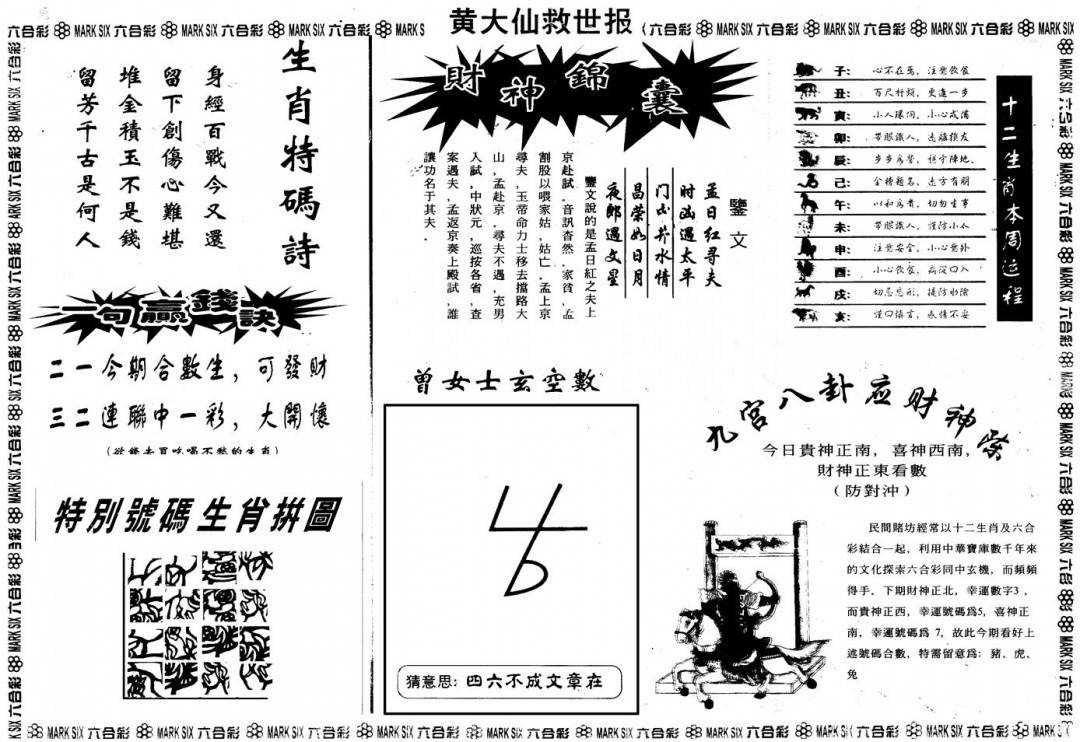 黄大仙救世报
六合彩 MARK SIX 六合彩 MARK SIX 六合彩 MARK SIX 六合彩 MARK S
六合彩 MARK SIX 六合彩 MARK SIX 六合彩 MARK SIX 六合彩 MARK SIX
生肖特碼詩
身經百戰今又還
留下創傷心難堪
堆金積玉不是錢
留芳千古是何人
一句贏錢訣
二一今期合數生，可發財
三二連聯中一彩，大開懷
特別號碼生肖拼圖
財神錦囊
鑒文
孟日红寻夫
时凶遇太平
门山井水情
昌荣如日月
夜郎遇文星
鑒文說的是孟日紅之夫上
京赴試，音訊杳然，家貧，孟
割股以喂家姑，姑亡，孟上京
尋夫，玉帝命力士移去擋路大
山，孟赴京，尋夫不遇，充男
入試，中狀元，巡按各省，查
案遇夫，孟返京奏上殿試，誰
讓功名于其夫．
曾女士玄空數
4
6
猜意思：四六不成文章在
十二生肖本周运程
子： 心不在焉，注意飲食
丑： 百尺杆頭，更進一步
寅： 小人環伺，小心戒備
卯： 帶眼識人，遠離損友
辰： 步步爲營，謹守陣地、
己： 金榜題名，遠方有朋
午： 以和爲貴，切勿生事
未： 帶眼識人，謹防小人
申： 注意安全，小心意外
酉： 小心飲食，病從口入
戌： 切忌忘形，提防水險
亥： 謹口慎言，感情不安
九宮八卦应财神柴
今日貴神正南，喜神西南，
財神正東看數
（防對沖）
民間賭坊經常以十二生肖及六合
彩結合一起，利用中華寶庫數千年來
的文化探索六合彩同中玄機，而頻頻
得手．下期財神正北，幸運數字3，
而貴神正西，幸運號碼爲5，喜神正
南，幸運號碼爲 7，故此今期看好上
述號碼合數，特需留意爲：豬、虎、
兔
MARK SIX 六合彩 MARK SIX 六合彩 MARK SIX 六合彩 MARK SIX 六合彩